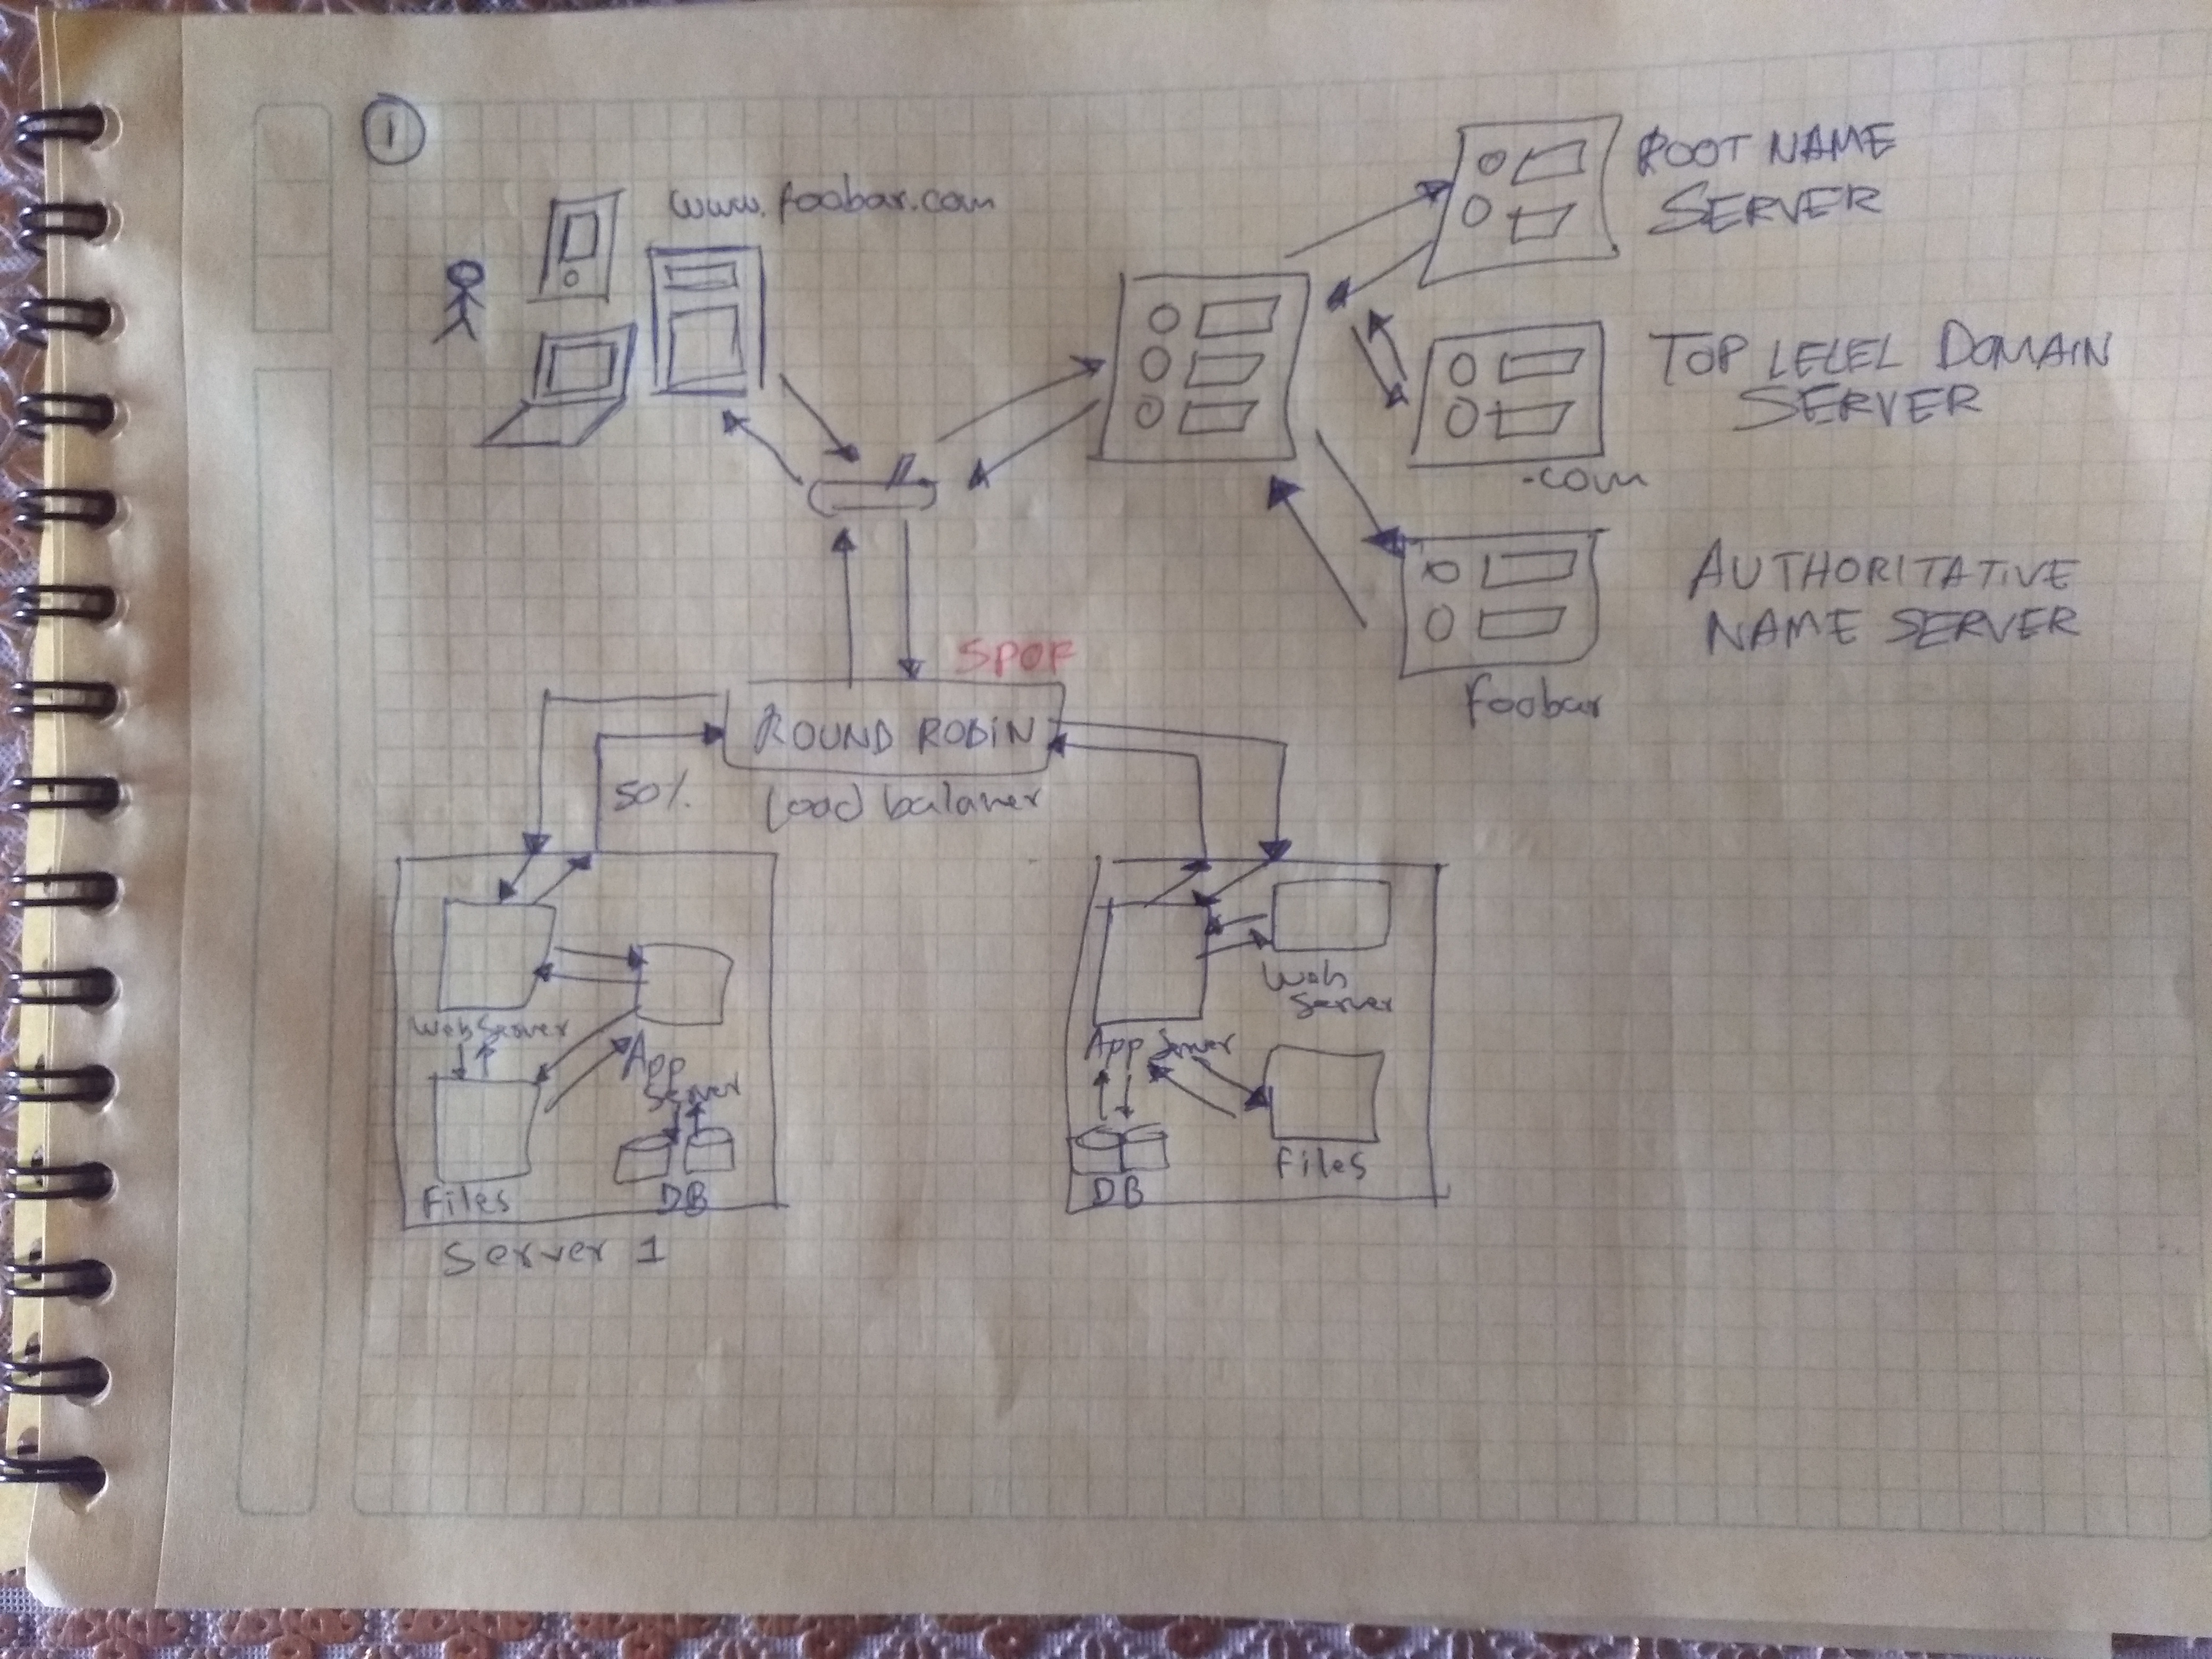 1
www.foobar.com
ROOT NAME
SERVER
TOP LEVEL DOMAIN
SERVER
.com
AUTHORITATIVE
NAME SERVER
foobar
SPOF
ROUND ROBIN
load balancer
50%
Web Server
App
Server
Files
DB
Server 1
Web
Server
App Server
Files
DB